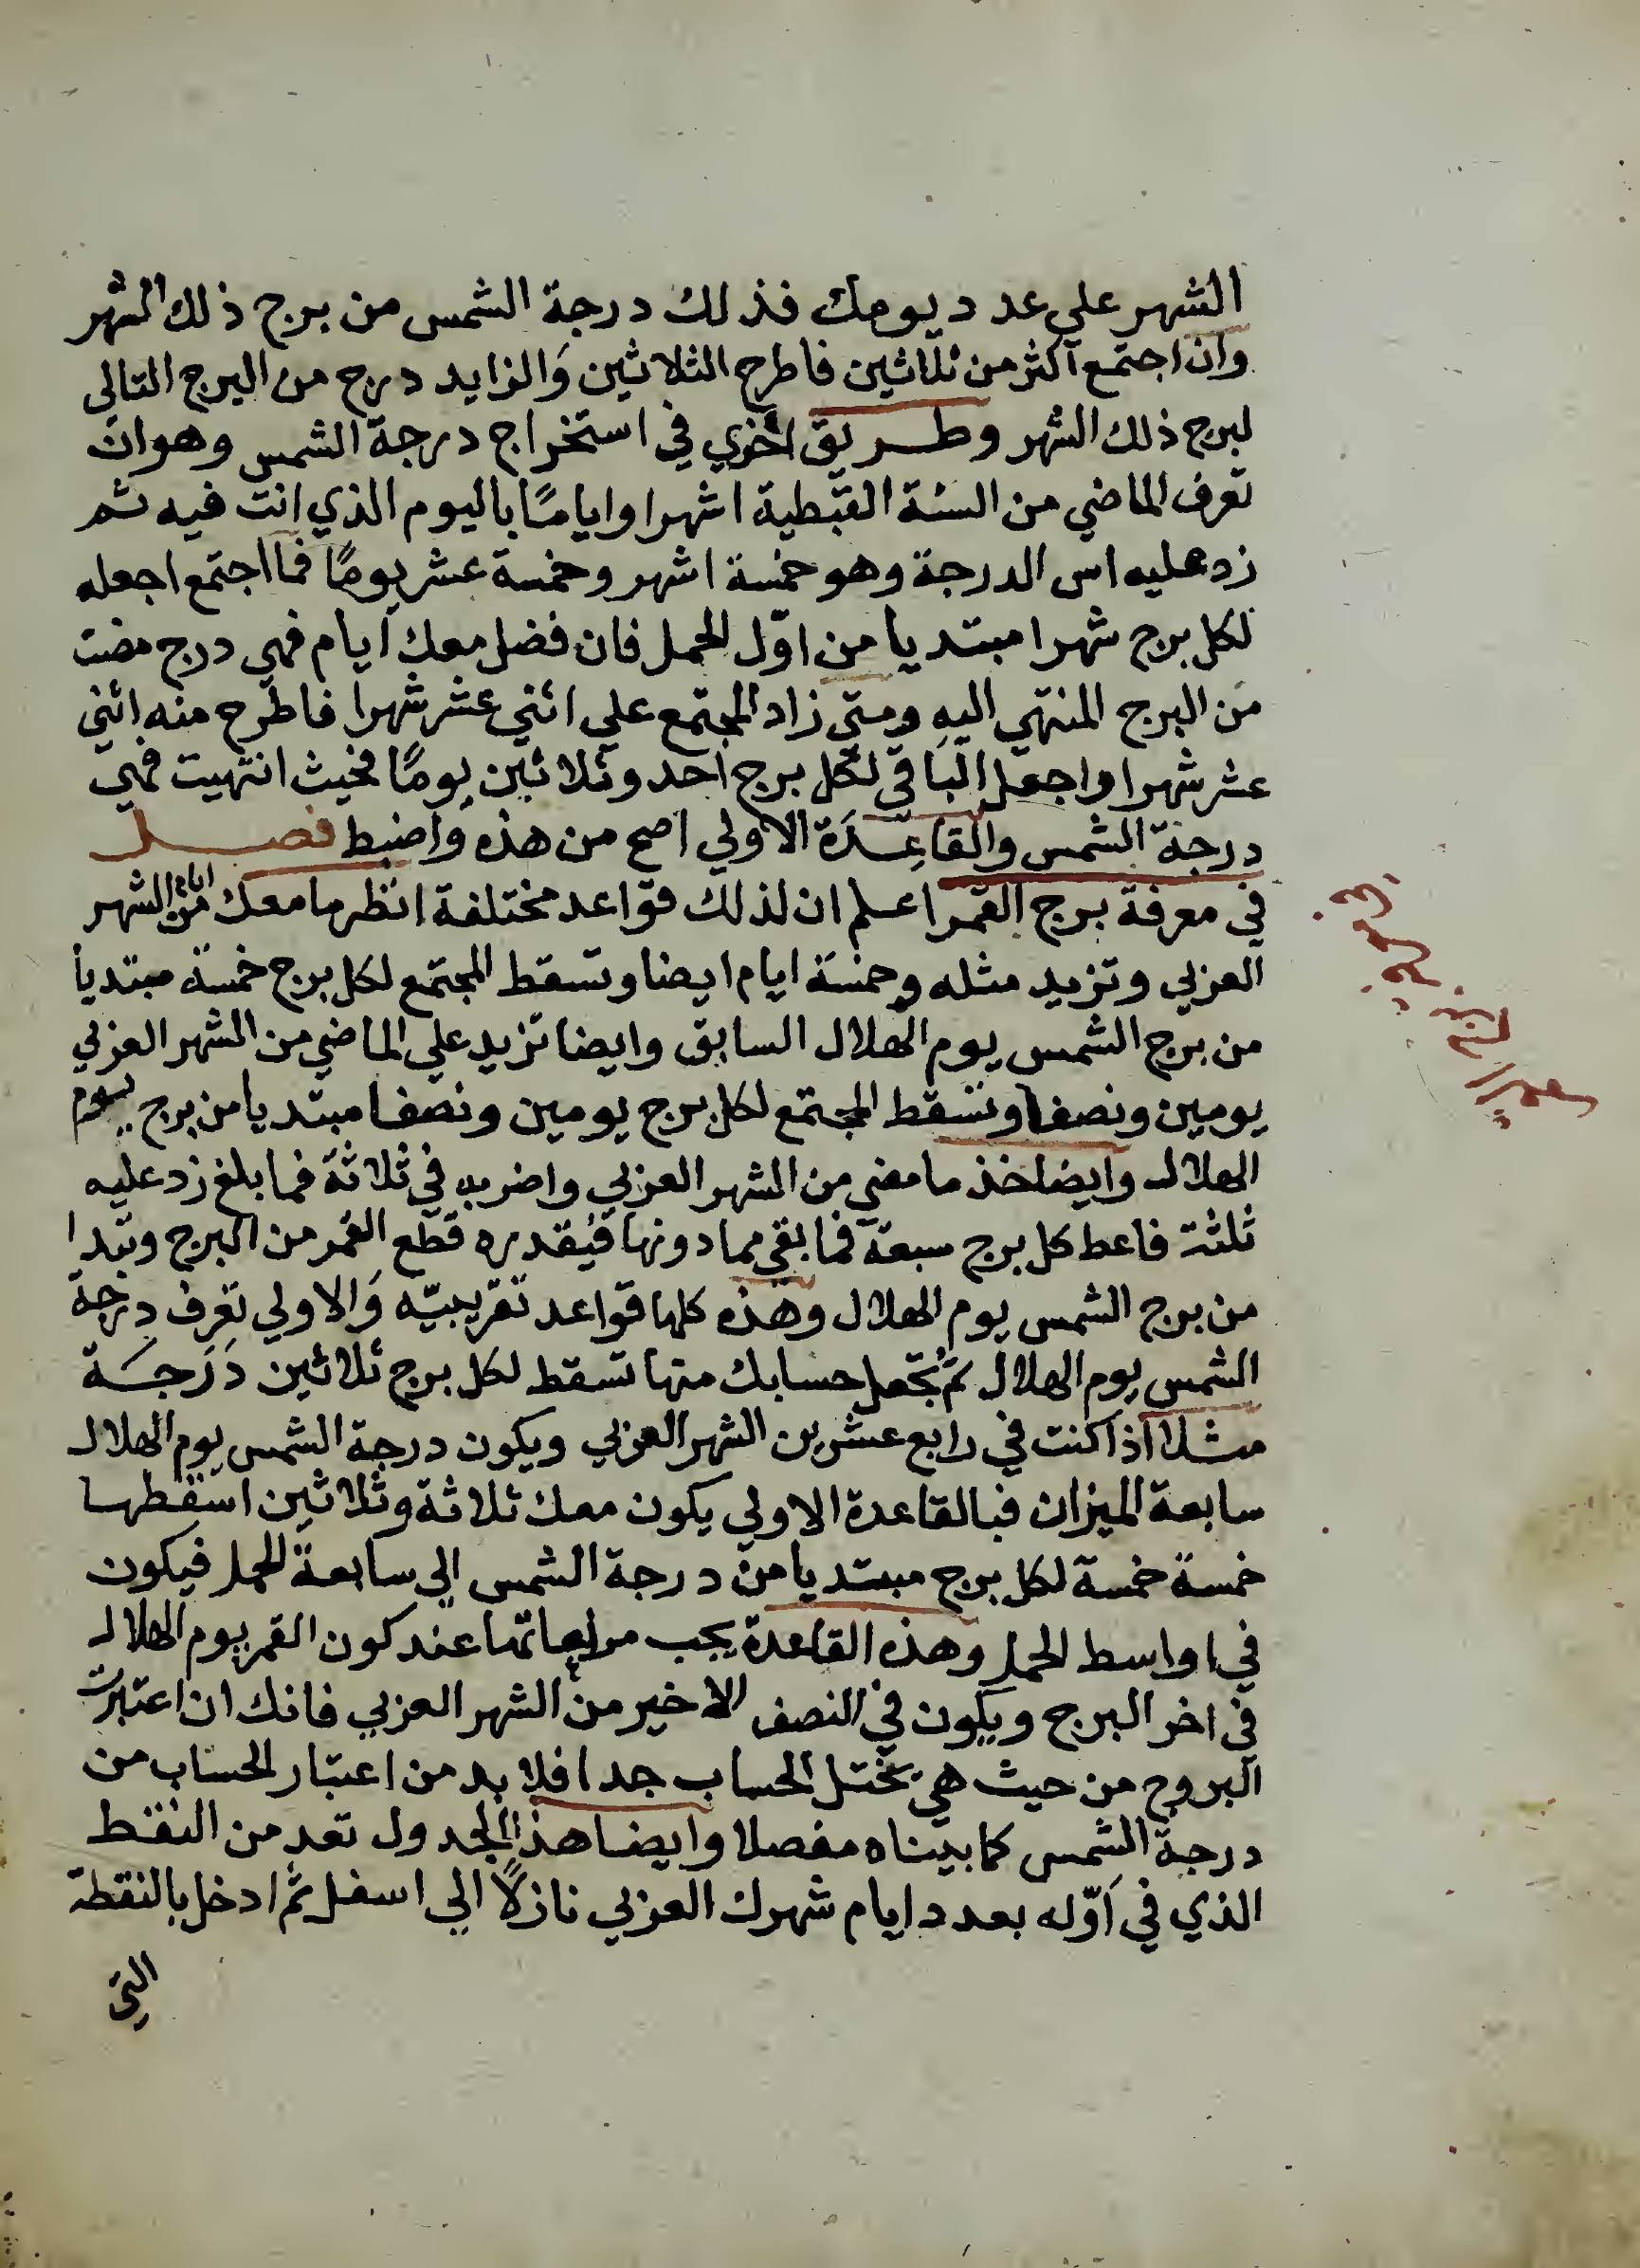 الشهر علي عدد يومك فذلك درجة الشمس من برج ذلك الشهر
وان اجتمع اكثر من ثلاثين فاطرح الثلاثين وَالزايد درج من البرج التالي
لبرج ذلك الشهر وطريق اخري في استخراج درجة الشمس وهو ان
تعرف الماضي من السنة القبطية اشهرا واياماً باليوم الذي انت فيه ثم
زد عليه اس الدرجة وهو خمسة اشهر وخمسة عشر يوماً فما اجتمع اجعله
لكل برج شهرا مبتديا من اوّل الحمل فان فضل معك ايام فهي درج مضت
من البرج المنتهي اليه ومتي زاد المجتمع علي اثني عشر شهرا فاطرح منه اثني
عشر شهرا واجعل الباقي لكل برج احد وثلاثين يوماً فحيث انتهيت فهي
درجة الشمس والقاعِدَة الاولي اصح من هذه واضبط فصل
في معرفة برج القمر اعلم ان لذلك قواعد مختلفة انظر ما معك من ايام الشهر
العربي وتزيد مثله وخمسة ايام ايضا وتسقط المجتمع لكل برج خمسة مبتدياً
من برج الشمس يوم الهلال السابق وايضا تزيد علي الماضي من الشهر العربي
يومين ونصفا وتسقط المجتمع لكل برج يومين ونصفا مبتديا من برج يوم
الهلال وايضا خذ ما مضي من الشهر العربي واضربه في ثلاثة فما بلغ زد عليه
ثلثة فاعط كل برج سبعة فما بقي مما دونها فبقدره قطع القمر من البرج وتبدا
من برج الشمس يوم الهلال وهذه كلها قواعد تقريبيّه وَالاولي تعرف درجة
الشمس يوم الهلال ثم تجعل حسابك منها تسقط لكل برج ثلاثين دَرَجَة
مثلا اذا كنت في رابع عشرين الشهر العربي ويكون درجة الشمس يوم الهلال
سابعة الميزان فبالقاعدة الاولي يكون معك ثلاثة وثلاثين اسقطها
خمسة خمسة لكل برج مبتديا من درجة الشمس الي سابعة الحمل فيكون
في اواسط الحمل وهذه القاعدة يجب مراعاتها عند كون القمر يوم الهلال
في اخر البرج ويكون في النصف الاخير من الشهر العربي فانك ان اعتبرت
البروج من حيث هي يختل الحساب جدا فلا بد من اعتبار الحساب من
درجة الشمس كما بيناه مفصلا وايضا هذا الجدول تعد من النقط
الذي في اَوّله بعدد ايام شهرك العربي نازلاً الي اسفل ثم ادخل بالنقطة
التي